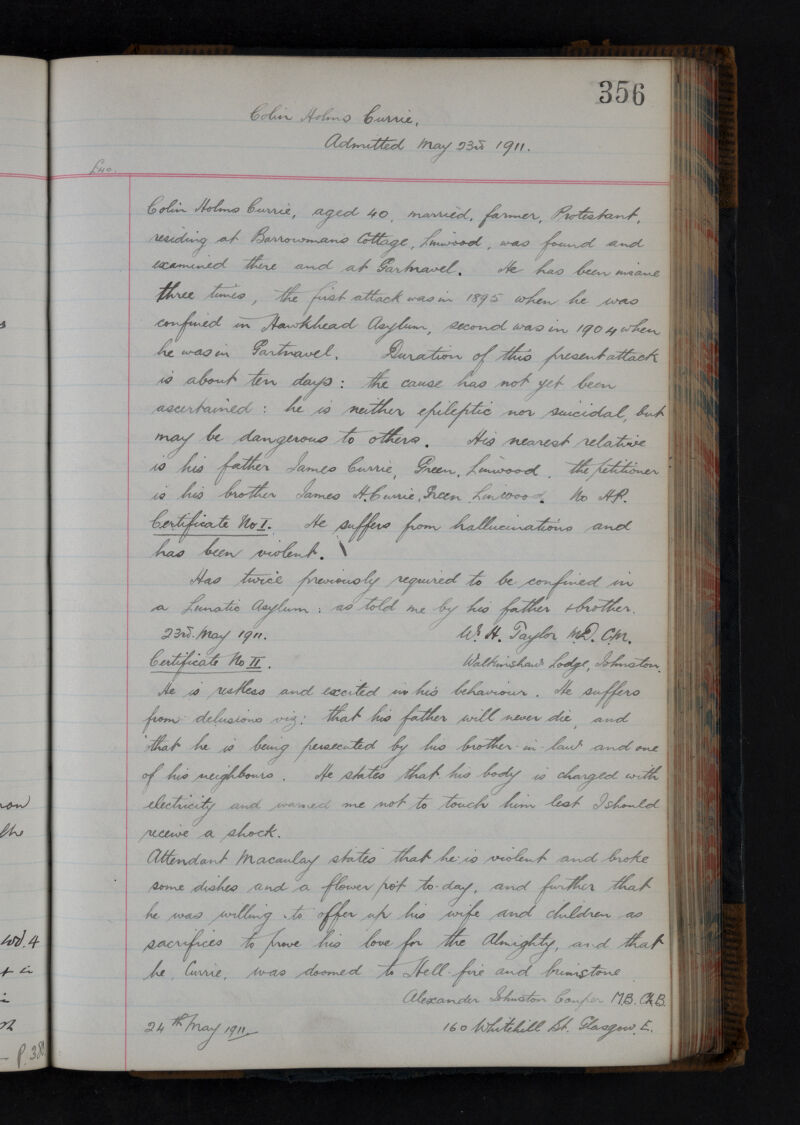 356
Colin Holms Currie.
Admitted May 23rd 1911.
£40.
Colin Holms Currie, aged 40, married, farmer, Protestant,
residing at Barrowmans Cottage, Linwood, was found and
examined there and at Gartnavel. He has been insane
three times, the first attack was in 1895 when he was
confined in Hawkhead Asylum, second was in 1904 when
he was in Gartnavel. Duration of this present attack
is about ten days: the cause has not yet been
ascertained: he is neither epileptic nor suicidal, but
may be dangerous to others. His nearest relative
is his father James Currie, Green, Linwood. the petitioner
is his brother James H. Currie, Green Linwood. No H.P.
Certificate No I. He suffers from hallucinations and
has been violent.
Has twice previously required to be confined in
a Lunatic Asylum: as told me by his father & brother.
23rd May 1911. W. H. Taylor M.D. C.M.
Certificate No II. Walkinshaw Lodge, Johnston.
He is restless and excited in his behaviour. He suffers
from delusions viz: that his father will never die, and
that he is being persecuted by his brother-in-law and one
of his neighbours. He states that his body is charged with
electricity and warned me not to touch him lest I should
receive a shock.
Attendant Macaulay states that he is violent and broke
some dishes and a flower pot to-day, and further that
he was willing to offer up his wife and children as
sacrifices to prove his love for the Almighty, and that
he, Currie, was doomed to Hell-fire and brimstone
Alexander Johnston Couper M.B. Ch.B.
24th May 1911 160 Whitehill St. Glasgow, E.
wd. 4
the